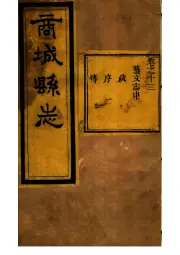 商城縣志
卷之十三
藝文志中
疏 序 傳